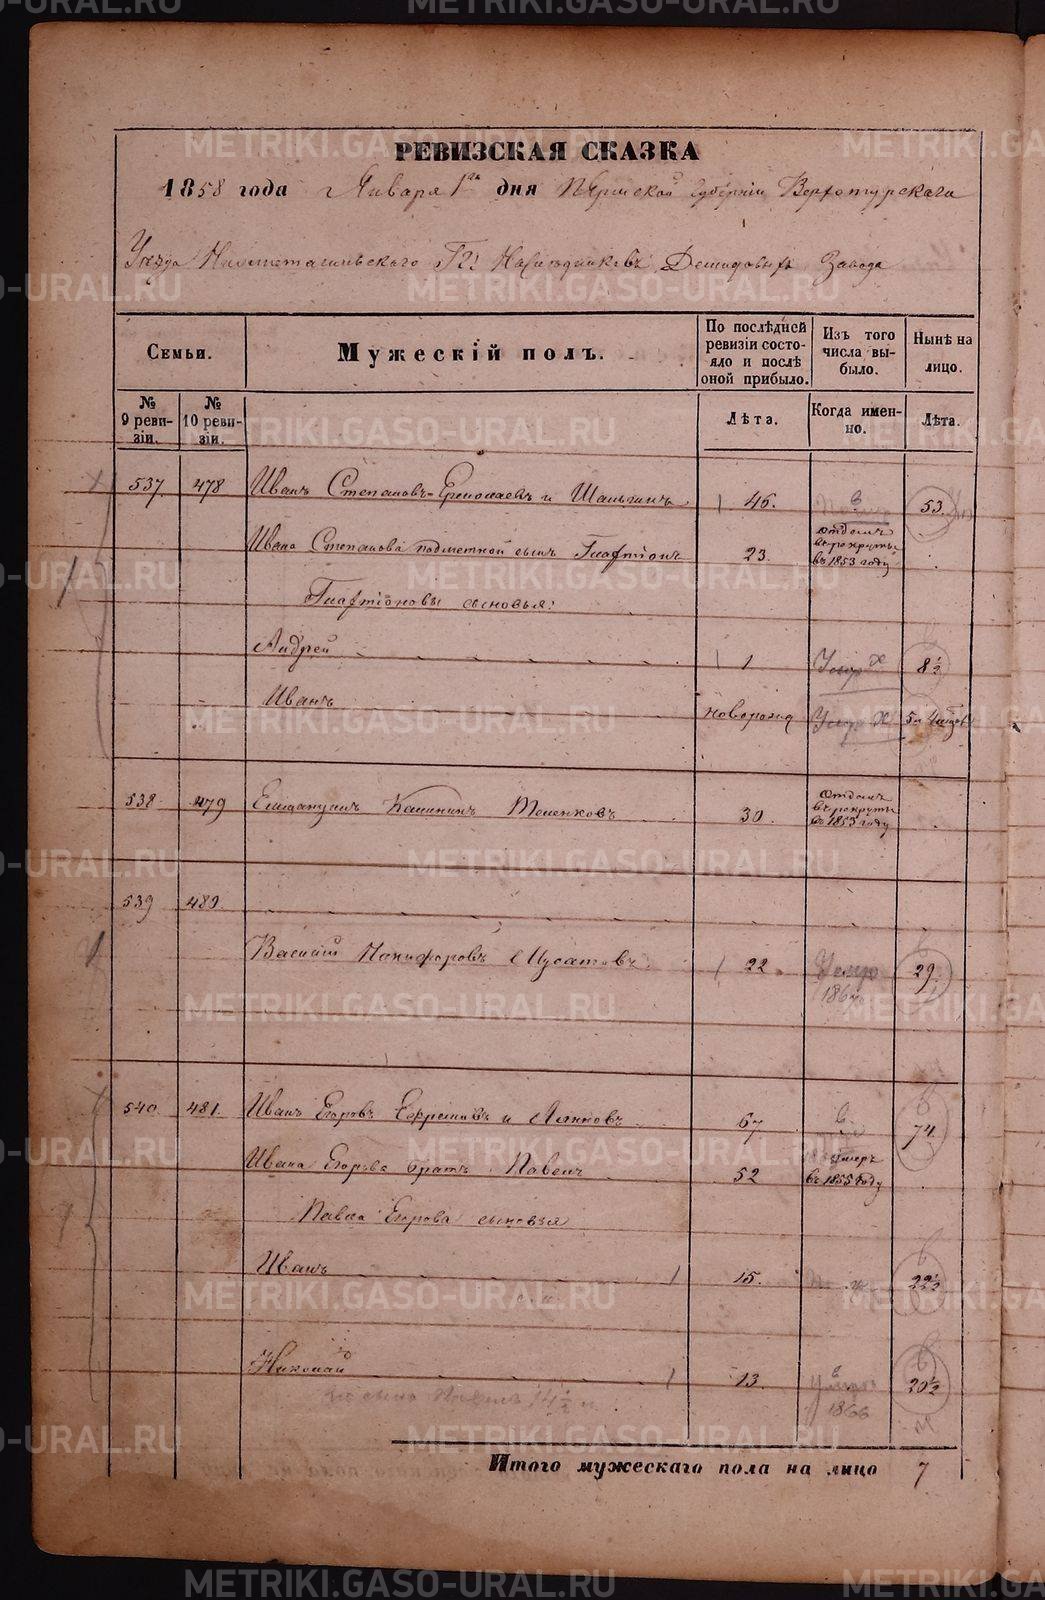 METRIKI.GASO-URAL.RU
РЕВИЗСКАЯ СКАЗКА
1858 года Января 1го дня Пермской губерніи Верхотурскаго
Уѣзда Нижнетагильскаго ГГ. Наслѣдниковъ Демидовыхъ Завода
Семьи.
Мужескій полъ.
По послѣдней ревизіи состояло и послѣ оной прибыло.
Изъ того числа выбыло.
Нынѣ на лицо.
№ 9 ревизіи.
№ 10 ревизіи.
Лѣта.
Когда именно.
Лѣта.
537. 478 Иванъ Степановъ Ермолаевъ и Шалыгинъ 46. 53.
Ивана Степанова подметной сынъ 23. отданъ въ рекруты въ 1853 году
сыновья:
Андрей 1 Умеръ 8½
Иванъ новорожд Умеръ
538. 479 Калининъ 30. отданъ въ рекруты въ 1853 году
539 480.
Василій Никифоровъ Мусатовъ 22 Умеръ 29
540. 481. Иванъ Егоровъ Ефремовъ и 67 74
Ивана Егорова братъ Павелъ 52 умеръ въ 1855 году
Павла Егорова сыновья
Иванъ 15. 22½
Николай 13. 20½
1866
Итого мужескаго пола на лицо 7